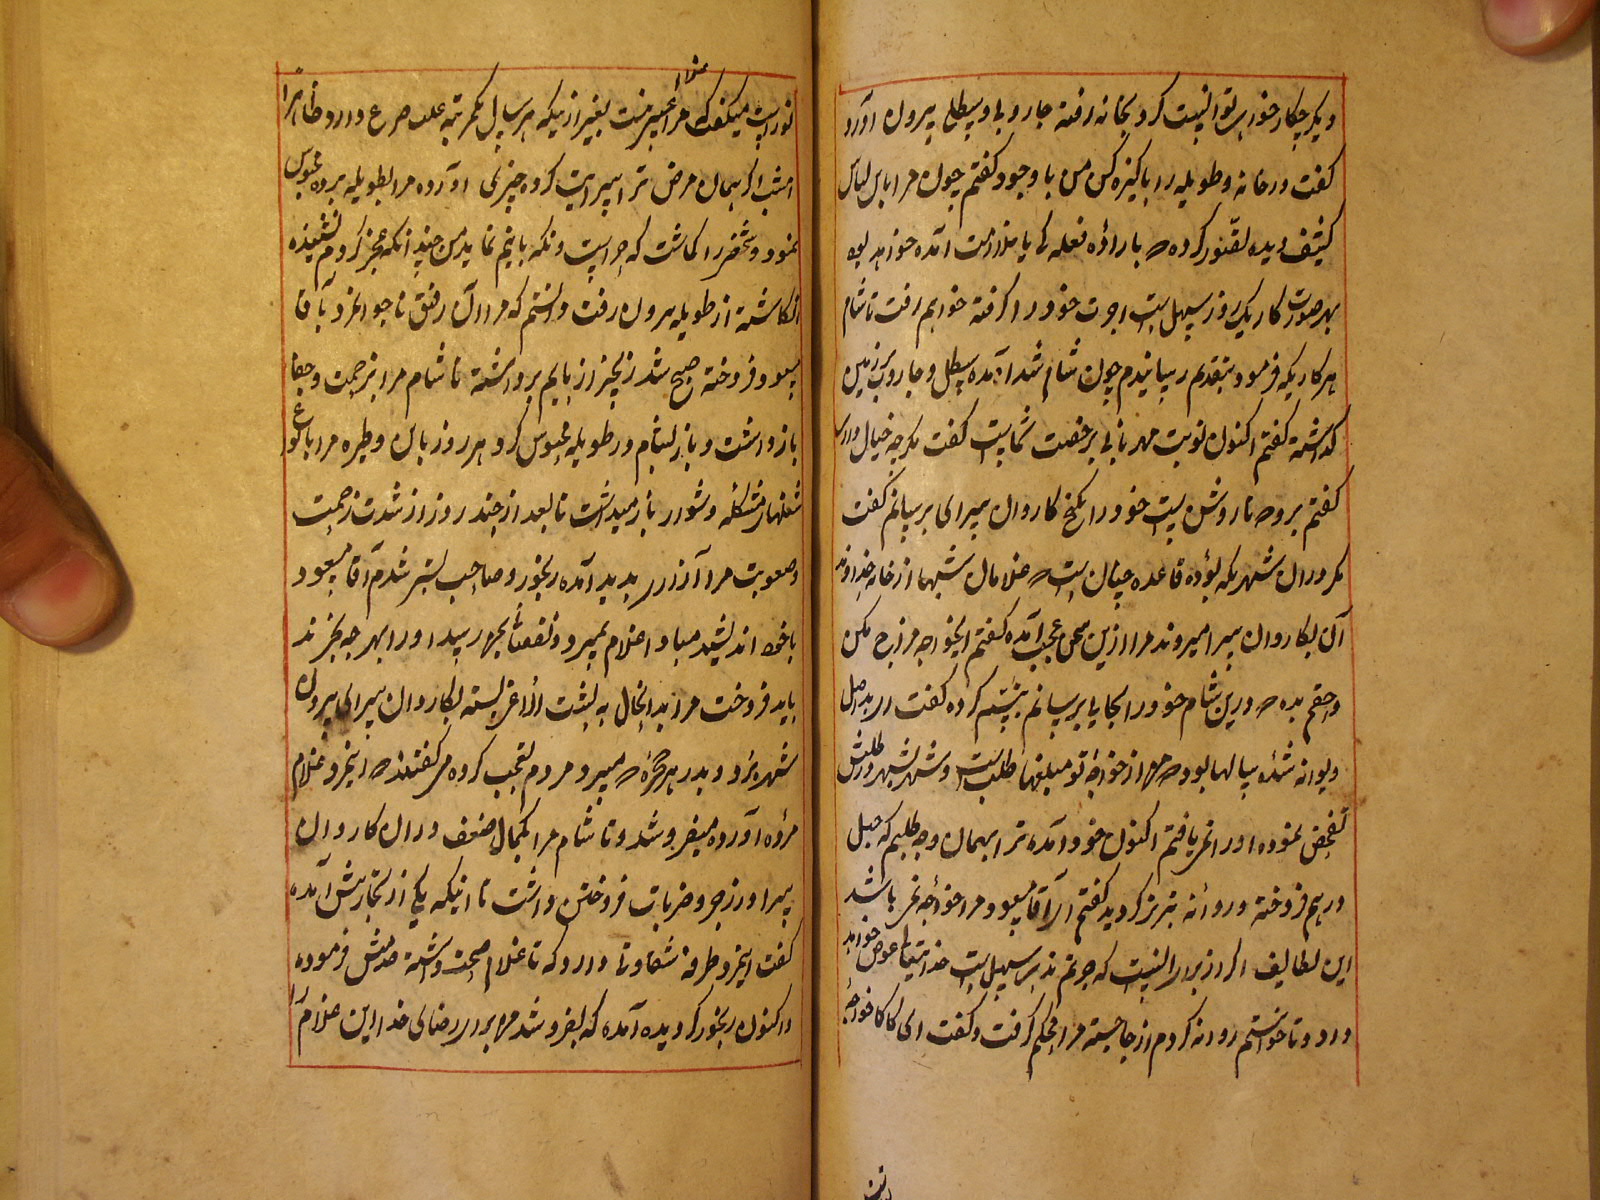 دیگر چکار خواهی توانست کرد بخانه رفته جاروبی و سطلی بیرون آورد
گفت در خانه و طویله را پاکیزه کن من باوجود گفتم چون مرا باین لباس
کثیف دیده تصور کرده که باراده فعله کی یا ملازمت آمده خواهد بود
بهر صورت کار یکروز سهل است اجرت خود را گرفته خواهم رفت تا شام
هر کاریکه فرمود بتقدیم رسانیدم چون شام شد آمده سطل و جاروب بر زمین
گذاشته گفتم اکنون نوبت مهربانی بر خصت شماست گفت مگر چه خیال داری
گفتم بروم تا روشن است خود را بکنج کاروان سرای برسانم گفت
مگر در آن شهریکه بوده قاعده چنان است که غلامان شبها از خانه خداوند
آن بکاروان سرا میروند مرا ازین سخن عجب آمده گفتم ایخواجه مزاح مکن
و حقم بده که درین شام خود را بجایی برسانم کرده گفت ای بد اصل
دیوانه شده سالها بود که مرا از خواجه تو مبلغها طلب است و شهر بشهر در طلبش
تفحص نموده اورا نمی یافتم اکنون خود آمده ترا بهمان وجه طلبم که چهل
درهم فروخته و روانه تبریز گردید گفتم ای آقا مسعود مرا خواجه نمی باشد
این لطایف اگر از برای آنست که جو ندهی سهل است خدایتعالی عوض خواهد
داد و تا خواستم روانه گردم از جا جسته مرا محکم گرفت و گفت ای کاکا خواجه
تو راست میگفت که مرا عیبی نیست بغیر از نیکه هر سال یکمرتبه علت صرع دارد ظاهرا
امشب اگر همان مرض ترا سرایت کرده چیزی آورده مرا بطویله برده محبوس
نمود و شخصی را گماشت که حراست و نگهبانیم نماید من چندانکه عجز کردم نشنیده
گذاشته از طویله بیرون رفت دانستم که مرا آن رفیق ناجوانمرد بآقا
مسعود فروخته صبح شد زنجیر از پایم برداشته تا شام مرا بزحمت و جفا
بازداشت و باز شام در طویله محبوس کرد هر روز باین وطیره مرا بانواع
شغلهای مشکله و شوار باز میداشت تا بعد از چند روز از شدت زحمت
و صعوبت مرا آزاری پدید آمده رنجور و صاحب بستر شدم آقا مسعود
با خود اندیشید مبادا غلام بمیرد و نقصان بهم رسد اورا بهر چه بخرند
باید فروخت مرا بدانحال به پشت الاغی بسته بکاروان سرای بیرون
شهر برد و بدر هر حجره که میبرد مردم تعجب کرده میگفتند که اینمرد غلام
مرده آورده میفروشد و تا شام مرا بکمال ضعف در آن کاروان
سرا ور زجر و ضربات فروختن واداشت تا اینکه یکی از تجار پیش آمده
گفت اینمرد طرفه شقاوتی دارد که تا غلام صحت داشته خدمتش فرموده
و اکنون رنجور گردیده آمده که بفروشد مرا برای رضای خدا این غلام را